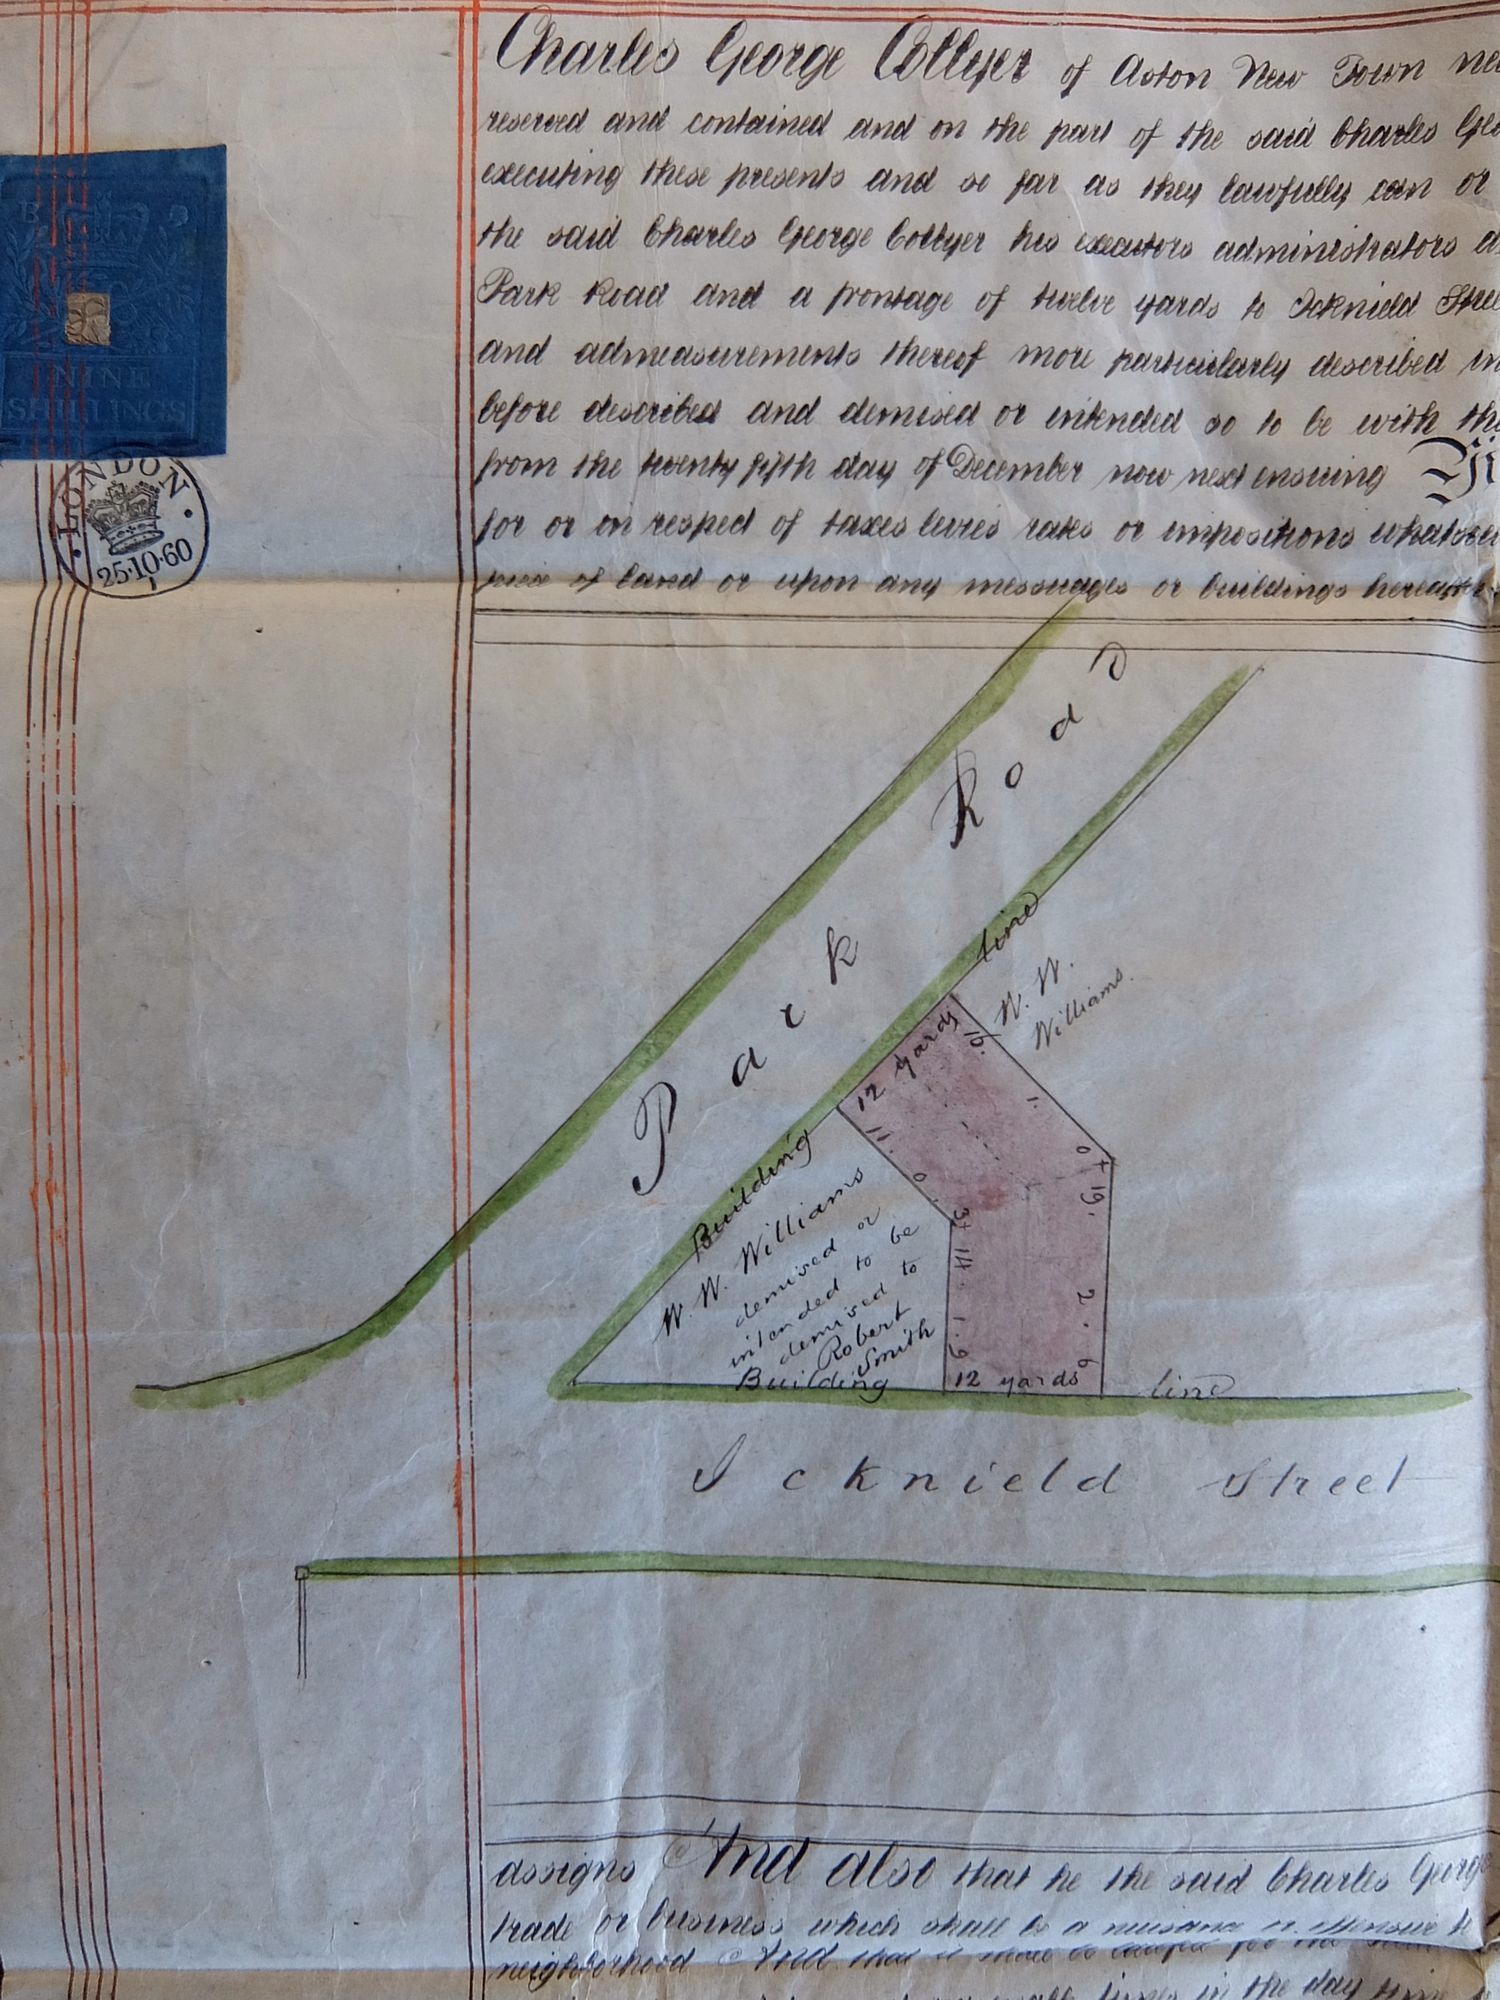 Charles George Collyer of Aston New Town
reserved and contained and on the part of the said Charles
executing these presents and so far as they lawfully can or
the said Charles George Collyer his executors administrators
Park Road and a frontage of twelve yards to Icknield
and admeasurements thereof more particularly described in
before described and demised or intended so to be with the
from the twenty fifth day of December now next ensuing
for or in respect of taxes levies rates or impositions
piece of land or upon any messuages or buildings
NINE
SHILLINGS
LONDON
25·10·60
Park Road
Building line
W. W.
Williams.
12 yards
16. 1. 0
11. 0. 3
19. 2. 6
14. 1. 9
12 yards
W. W. Williams
demised or
intended to be
demised to
Robert
Smith
Building line
Icknield Street
assigns And also that he the said Charles George
trade or business which shall be a
neighborhood And that it shall be lawful for the
times in the day time